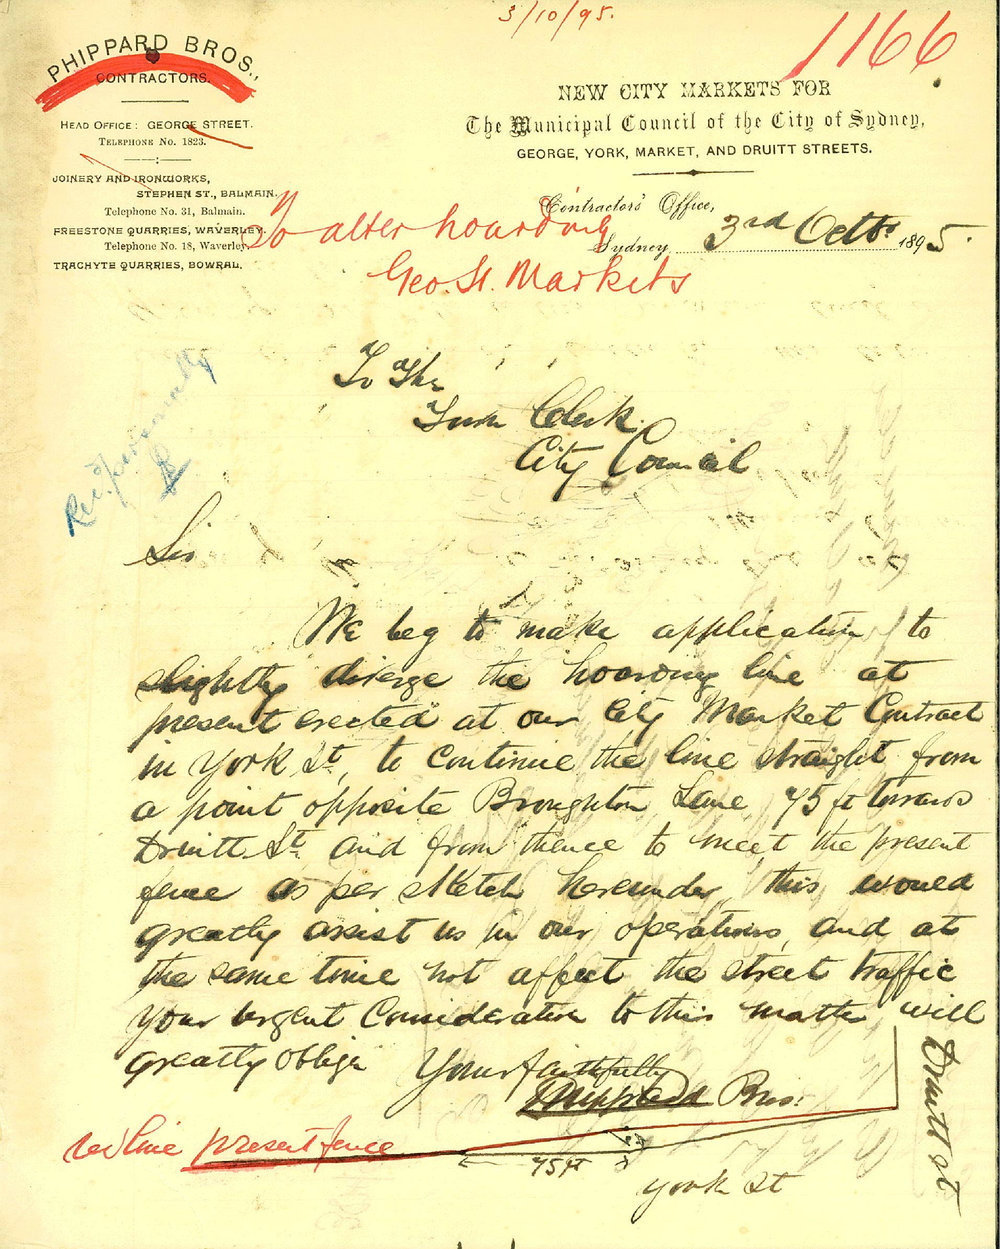 3/10/95.
1166
PHIPPARD BROS.,
CONTRACTORS.
HEAD OFFICE: GEORGE STREET.
TELEPHONE No. 1823.
JOINERY AND IRONWORKS,
STEPHEN ST., BALMAIN.
Telephone No. 31, Balmain.
FREESTONE QUARRIES, WAVERLEY.
Telephone No. 18, Waverley.
TRACHYTE QUARRIES, BOWRAL.
NEW CITY MARKETS FOR
The Municipal Council of the City of Sydney,
GEORGE, YORK, MARKET, AND DRUITT STREETS.
Contractors' Office,
Sydney, 3rd Octbr 1895.
To alter hoarding
Geo. St. Markets
To The
Town Clerk
City Council
Rec. personally
Sir
We beg to make application to
slightly diverge the hoarding line at
present erected at our City Market Contract
in York St, to continue the line straight from
a point opposite Broughton Lane 75 ft towards
Druitt St. and from thence to meet the present
fence as per sketch hereunder, this would
greatly assist us in our operations, and at
the same time not affect the street traffic
Your urgent Consideration to this matter will
greatly oblige
Yours faithfully
Phippard Bros.
red line present fence
75 ft
York St
Druitt st